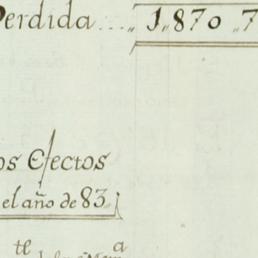 Perdida ..., 1,,870 ,,7
os Efectos
el año de 83,,
te a